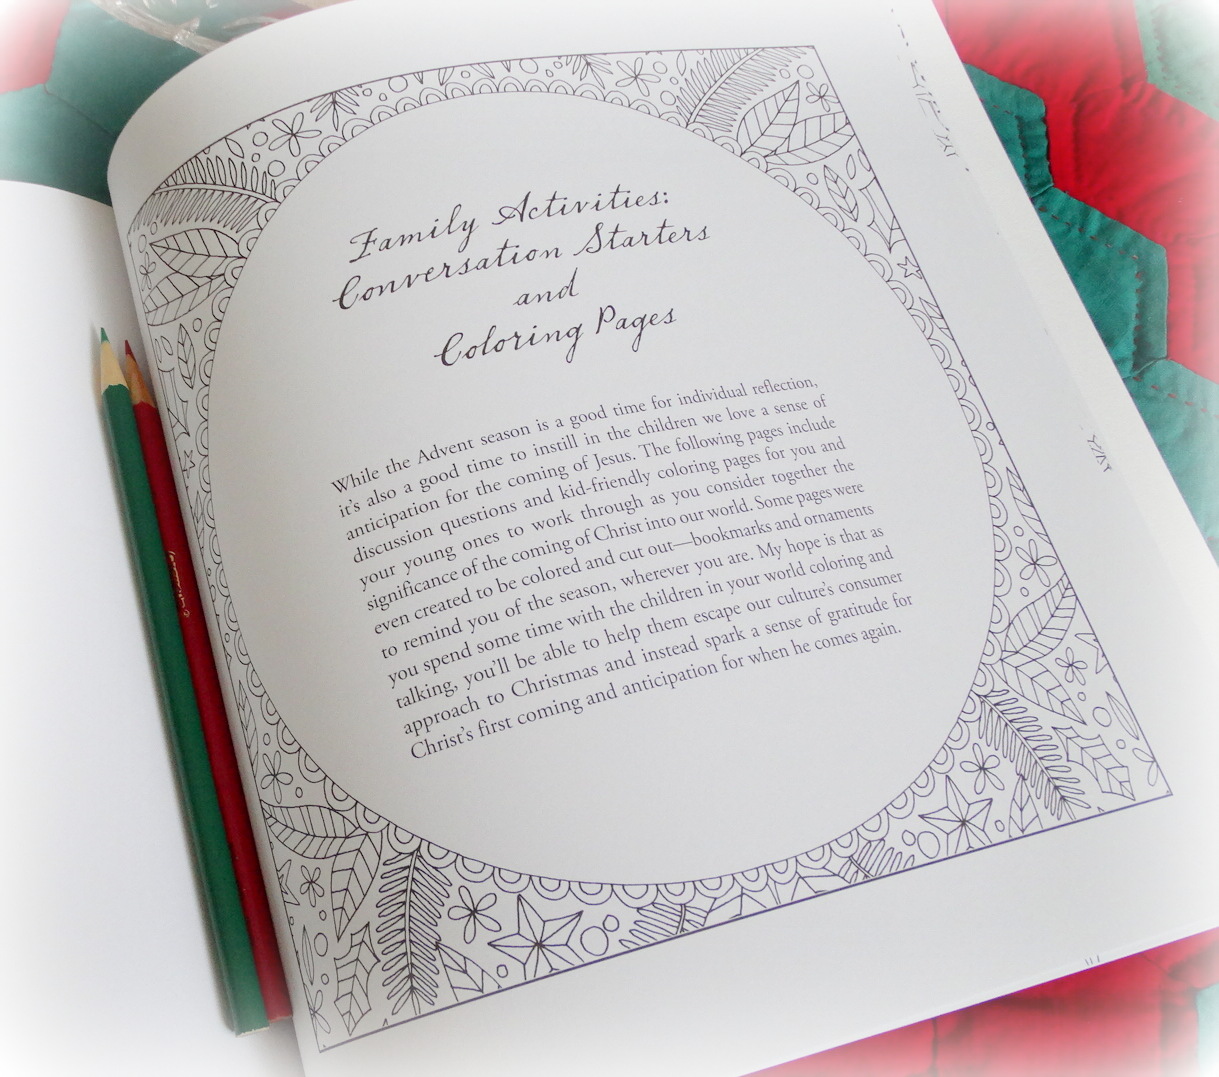 Family Activities:
Conversation Starters
and
Coloring Pages
While the Advent season is a good time for individual reflection,
it's also a good time to instill in the children we love a sense of
anticipation for the coming of Jesus. The following pages include
discussion questions and kid-friendly coloring pages for you and
your young ones to work through as you consider together the
significance of the coming of Christ into our world. Some pages were
even created to be colored and cut out—bookmarks and ornaments
to remind you of the season, wherever you are. My hope is that as
you spend some time with the children in your world coloring and
talking, you'll be able to help them escape our culture's consumer
approach to Christmas and instead spark a sense of gratitude for
Christ's first coming and anticipation for when he comes again.